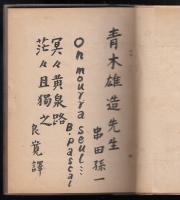 青木雄造先生
串田孫一
On mourra
seul...
B. pascal
冥々黄泉路
茫々且獨之
良寛譯